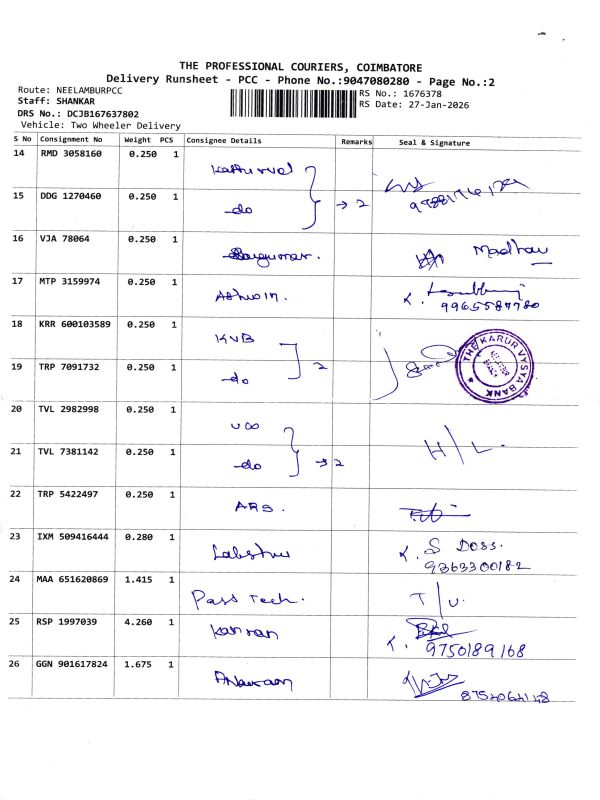 THE PROFESSIONAL COURIERS, COIMBATORE
Delivery Runsheet - PCC - Phone No.:9047080280 - Page No.:2
Route: NEELAMBURPCC
RS No.: 1676378
Staff: SHANKAR
RS Date: 27-Jan-2026
DRS No.: DCJB167637802
Vehicle: Two Wheeler Delivery
S No Consignment No Weight PCS Consignee Details Remarks Seal & Signature
14 RMD 3058160 0.250 1
15 DDG 1270460 0.250 1 -do → 2
16 VJA 78064 0.250 1 Madhau
17 MTP 3159974 0.250 1 Ashwin.
9965587780
18 KRR 600103589 0.250 1 KVB
THE KARUR VYSYA BANK
19 TRP 7091732 0.250 1 -do 2
20 TVL 2982998 0.250 1 UCO
21 TVL 7381142 0.250 1 -do → 2 H/L.
22 TRP 5422497 0.250 1 ARS.
23 IXM 509416444 0.280 1 Lakshmi S Doss.
9363300182
24 MAA 651620869 1.415 1 Pass Tech. T/U.
25 RSP 1997039 4.260 1 Kannan
9750189168
26 GGN 901617824 1.675 1